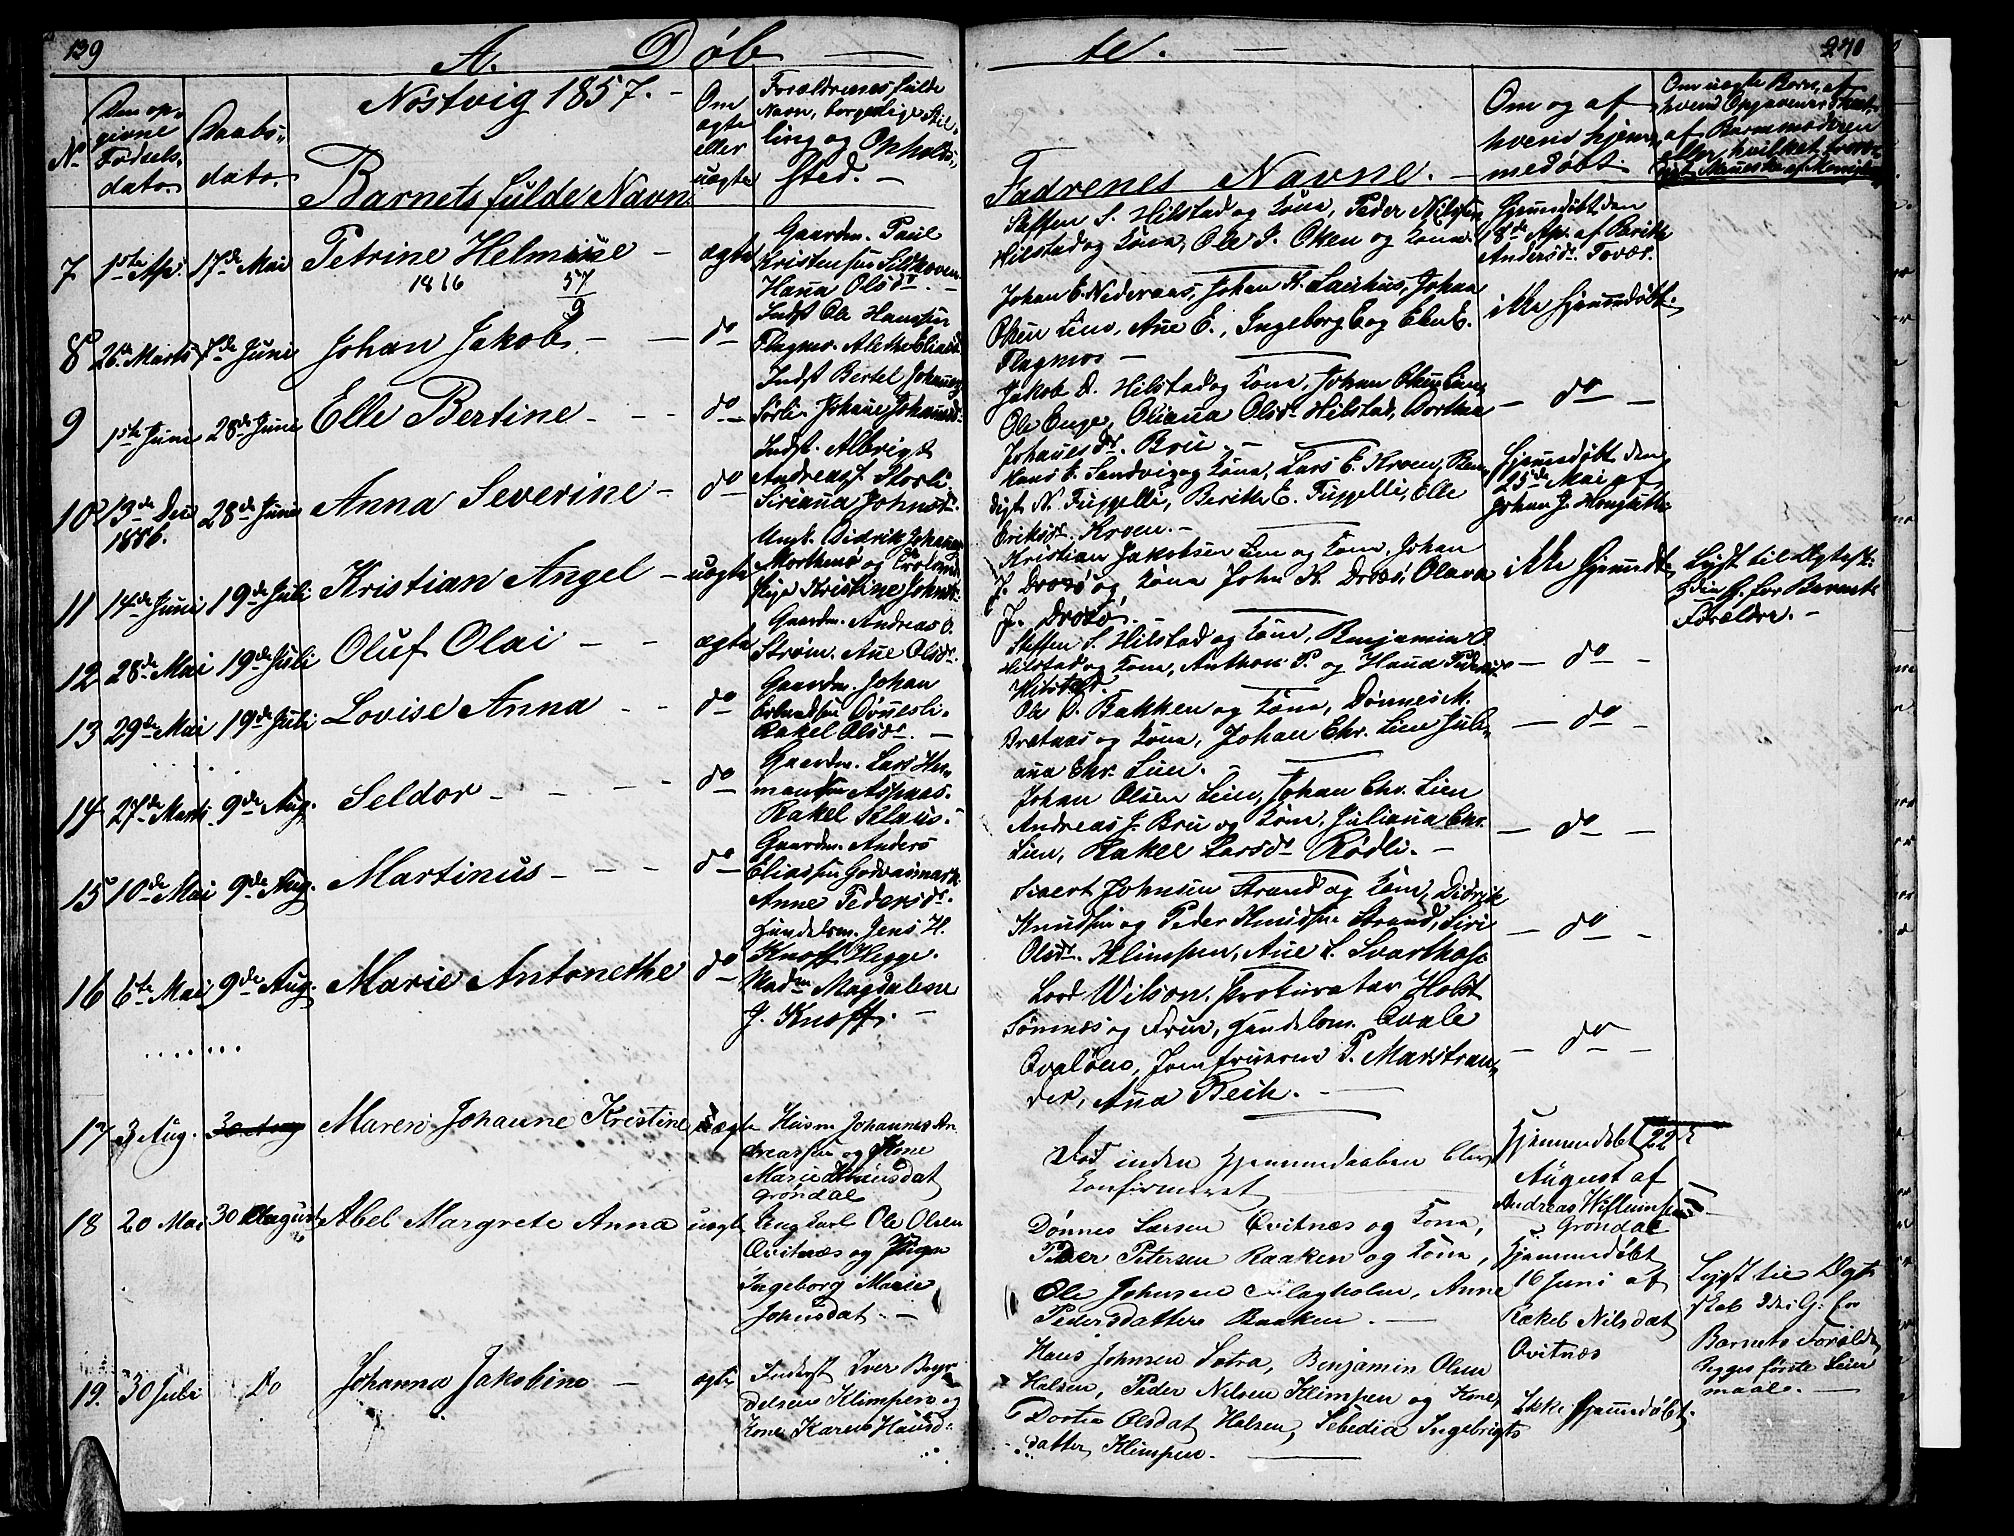 139
A. Døb
te.
240
Nostvig 1857.
No
Den op-
givne
Fødsels-
dato
Daabs-
dato.
Barnets fulde Navn
Om
ægte
eller
uægte
Forældrenes fulde
Navn, borgerlige Stil-
ling og Opholds-
sted.
Fadrenes Navne.
Om og af
hvem hjem-
medøbt
Om uægte Børn, af
7 1ste Ap. 17de Mai Petrine Helmine
1816 57
9
ægte
Gaardm. Paul
Kristensen
Hana Olsdr.
Steffen S. Hilstad og Kona, Peder Nilsen
Hilstad og Kona, Ole P. Oken og Kona
Hjemmedøbt den
8de Ap. af Berith
Andersdr. Tovær.
8 26de Marts 7de Juni Johan Jakob
do
Indst Ole Hansen
Flagmo.
Johan E. Nederaas, Johan H. Lauhus, Johan
Olsen Lien, Ane E., Ingeborg E og Elen E.
Flagmos
ikke hjemmedøbt.
9 1ste Juni 28de Juni Elle Bertine
do
Indst Bertel Johannes
Sørli. Johane Johannesd.
Jakob D. Hilstad og Kona, Johan Olsen Lien,
Ole Enge, Oliana Olsdr. Hilstad, Dorthea
Johanesdr. Brù.
do
10 13de Dec 28de Juni Anna Severine
1856.
do
Indst. Albrigt
Andreass. Storli.
Siriana Johnsdr.
Hans E. Sandvig og Kona, Lars E. Kroen, Ben-
digt N. Fuggelli, Berith E. Fuggelli, Elle
Eriksdr. Kroen.
Hjemmedøbt den
25de Mai af
Johan J.
11 14de Juni 19de Juli Kristian Angel
uægte
Ungk. Didrik Johansen
Mortensø og
Pige Kristine Johnsd.
Kristian Jakobsen Lien og Kona. Johan
J. Drozø og Kona John H. Drozø, Olava
J. Drozø.
ikke hjemmedt.
Lyst til Ægtesk.
3die G. for Barnets
Forældre.
12 28de Mai 19de Juli Oluf Olai
ægte
Gaardm. Andreas O.
Strøm. Ane Olsdr.
Steffen S. Hilstad og Kona, Benjamin O
Hilstad og Kona, Anthon P. og Hana Pedersd
Hilstad.
do
13 29de Mai 19de Juli Lovise Anna
do
Gaardm. Johan
Erlandsen Dønnesli.
Rakel Olsdr.
Ole O. Bakken og Kona, Dønnes M.
Brataas og Kona, Johan Chr. Lien Juli-
ana Chr. Lien.
do
14 27de Marts 9de Aug. Seldor
do
Gaardm. Lars Her-
mansen Aspaas.
Rakel Klaus.
Johan Olsen Lien, Johan Chr. Lien
Andreas J. Brù og Kona, Juliana Chr.
Lien, Rakel Larsdr Rødli.
do
15 10de Mai 9de Aug. Martinus
do
Gaardm. Anders
Eliassen Godvasmark
Anne Pedersdr.
Sivert Johnsen Strand og Kona, Didrik
Knudsen og Peder Knudsen Strand, Siri
Olsdr. Klimpen, Ane L. Svarthos
do
16 6te Mai 9de Aug. Marie Antonethe
do
Handelsm. Jens H.
Knoff Hegge.
Madm Magdalene
J. Knoff.
Lord Wilson, Prokurator Holst
Sømnæs og Frue, Handelsm. Qvale
Qvaløen, Jomfruerne P. Marstran-
der, Ana Beck.
do
17 3 Aug. 30 Aug Maren Johanne Kristine
ægte
Husm Johannes An-
dreassen og Kone
Marie Knudsdat
Grøndal
Død inden hjemmedaaben blev
konfirmeret
Hjemmedøbt 22de
August af
Andreas
Grøndal
18 20 Mai 30 August Abel Margrete Anna
uægte
Ung Karl Ole Olsen
Qvitnæs og Pigen
Ingeborg Marie
Johnsdat.
Dønnes Larsen Qvitnæs og Kona,
Peder Petersen Raaken og Kona,
Ole Johnsen Flagholm, Anne
Pedersdatter Raaken.
Hjemmedøbt
16 Juni af
Rakel Nilsdat
Qvitnæs
Lyst til Ægte-
skab 3die G: for
Barnets Forældre
Begges første Leier
maal.
19. 30 Juli Do Johanna Jakobine
ægte
Inderst Iver Bryn-
delsen Klimpen og
Kone Karen Hansd:
Hans Johnsen Sotra, Benjamin Olsen
Halsen, Peder Nilsen Klimpen og Kone,
Dortea Olsdat Halsen, Sebedia Ingebrigts
datter Klimpen.
Ikke Hjemmedøbt.